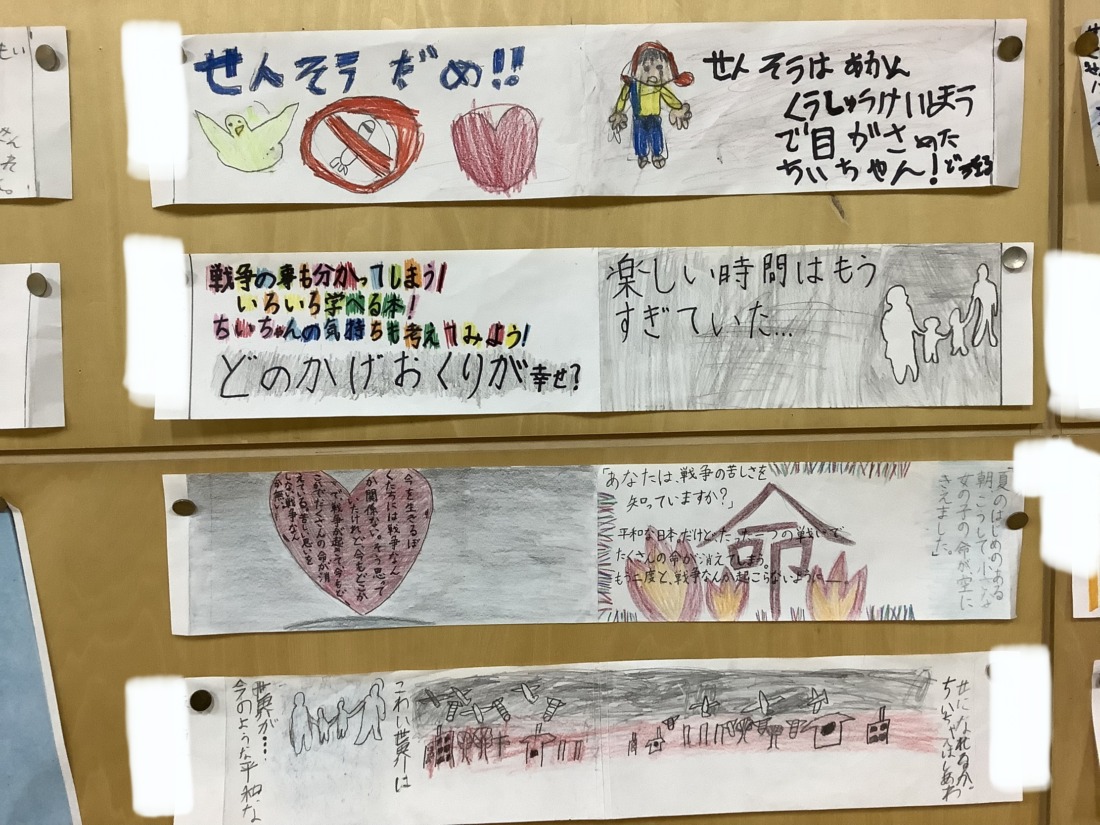 せんそうだめ!!
せんそうはあかん
くうしゅうけいほう
で目がさめた
ちいちゃん!どうなる
戦争の事も分かってしまう!
いろいろ学べる本!
ちいちゃんの気持ちも考えてみよう!
どのかげおくりが幸せ?
楽しい時間はもう
すぎていた…
今を生きるぼ
くたちには戦争なん
か関係ない。そう思って
いたけれど、今もどこか
で戦争が起こって
「あなたは、戦争の苦しさを
知っていますか?」
命
平和な日本だけど、たった一つの戦いで
たくさんの命が消えてしまう。
もう二度と、戦争なんか起こらないように――
「夏のはじめのある
朝こうして小さな
女の子の命が、空に
きえました。」
せになれるか
ちいちゃんはしあわ
こわい世界は
世界が…
今のような平和な